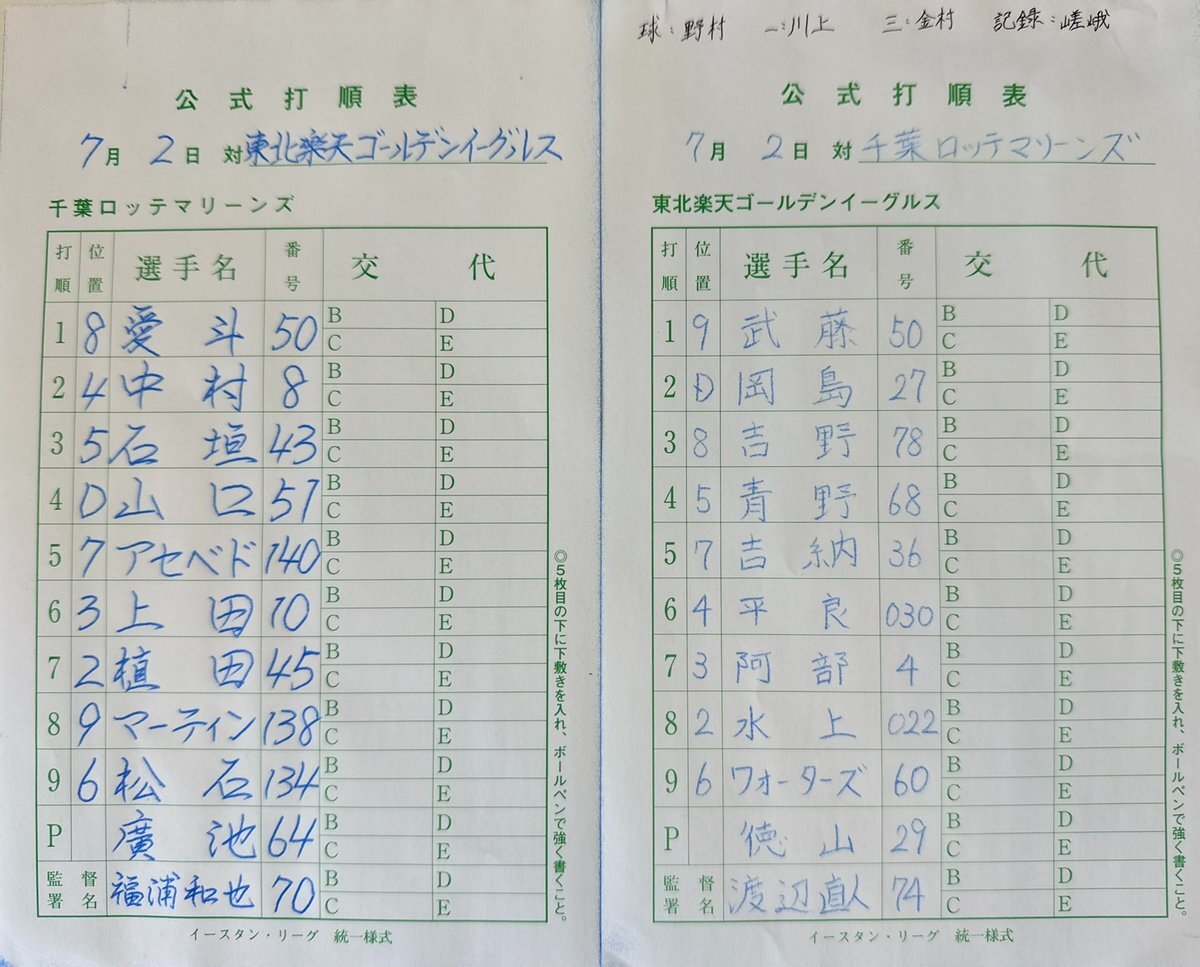 球:野村 一:川上 三:金村 記録:嵯峨
公式打順表
7月2日 対 東北楽天ゴールデンイーグルス
千葉ロッテマリーンズ
打順 位置 選手名 番号 交代
1 8 愛斗 50 B D C E
2 4 中村 8 B D C E
3 5 石垣 43 B D C E
4 D 山口 51 B D C E
5 7 アセベド 140 B D C E
6 3 上田 10 B D C E
7 2 植田 45 B D C E
8 9 マーティン 138 B D C E
9 6 松石 134 B D C E
P 廣池 64 B D C E
監督署名 福浦和也 70 B D C E
イースタン・リーグ 統一様式
◎5枚目の下に下敷きを入れ、ボールペンで強く書くこと。
公式打順表
7月2日 対 千葉ロッテマリーンズ
東北楽天ゴールデンイーグルス
打順 位置 選手名 番号 交代
1 9 武藤 50 B D C E
2 D 岡島 27 B D C E
3 8 吉野 78 B D C E
4 5 青野 68 B D C E
5 7 吉納 36 B D C E
6 4 平良 030 B D C E
7 3 阿部 4 B D C E
8 2 水上 022 B D C E
9 6 ワォーターズ 60 B D C E
P 徳山 29 B D C E
監督署名 渡辺直人 74 B D C E
イースタン・リーグ 統一様式
◎5枚目の下に下敷きを入れ、ボールペンで強く書くこと。